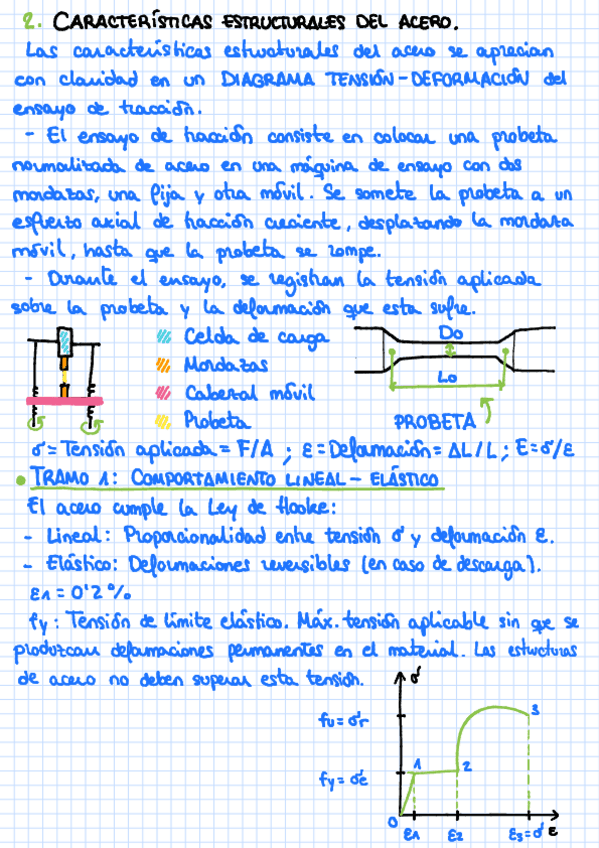 2. CARACTERÍSTICAS ESTRUCTURALES DEL ACERO.
Las características estructurales del acero se aprecian
con claridad en un DIAGRAMA TENSIÓN-DEFORMACIÓN del
ensayo de tracción.
- El ensayo de tracción consiste en colocar una probeta
normalizada de acero en una máquina de ensayo con dos
mordazas, una fija y otra móvil. Se somete la probeta a un
esfuerzo axial de tracción creciente, desplazando la mordaza
móvil, hasta que la probeta se rompe.
- Durante el ensayo, se registran la tensión aplicada
sobre la probeta y la deformación que esta sufre.
Celda de carga
Mordazas
Cabezal móvil
Probeta
Do
Lo
PROBETA
σ = Tensión aplicada = F/A ; ε = Deformación = ΔL/L ; E = σ/ε
• TRAMO 1: COMPORTAMIENTO LINEAL - ELÁSTICO
El acero cumple la Ley de Hooke:
- Lineal: Proporcionalidad entre tensión σ y deformación ε.
- Elástico: Deformaciones reversibles (en caso de descarga).
ε1 = 0'2 %
fy: Tensión de límite elástico. Máx. tensión aplicable sin que se
produzcan deformaciones permanentes en el material. Las estructuras
de acero no deben superar esta tensión.
σ
fu = σr
3
1
2
fy = σe
0
ε1
ε2
ε3 = σ
ε